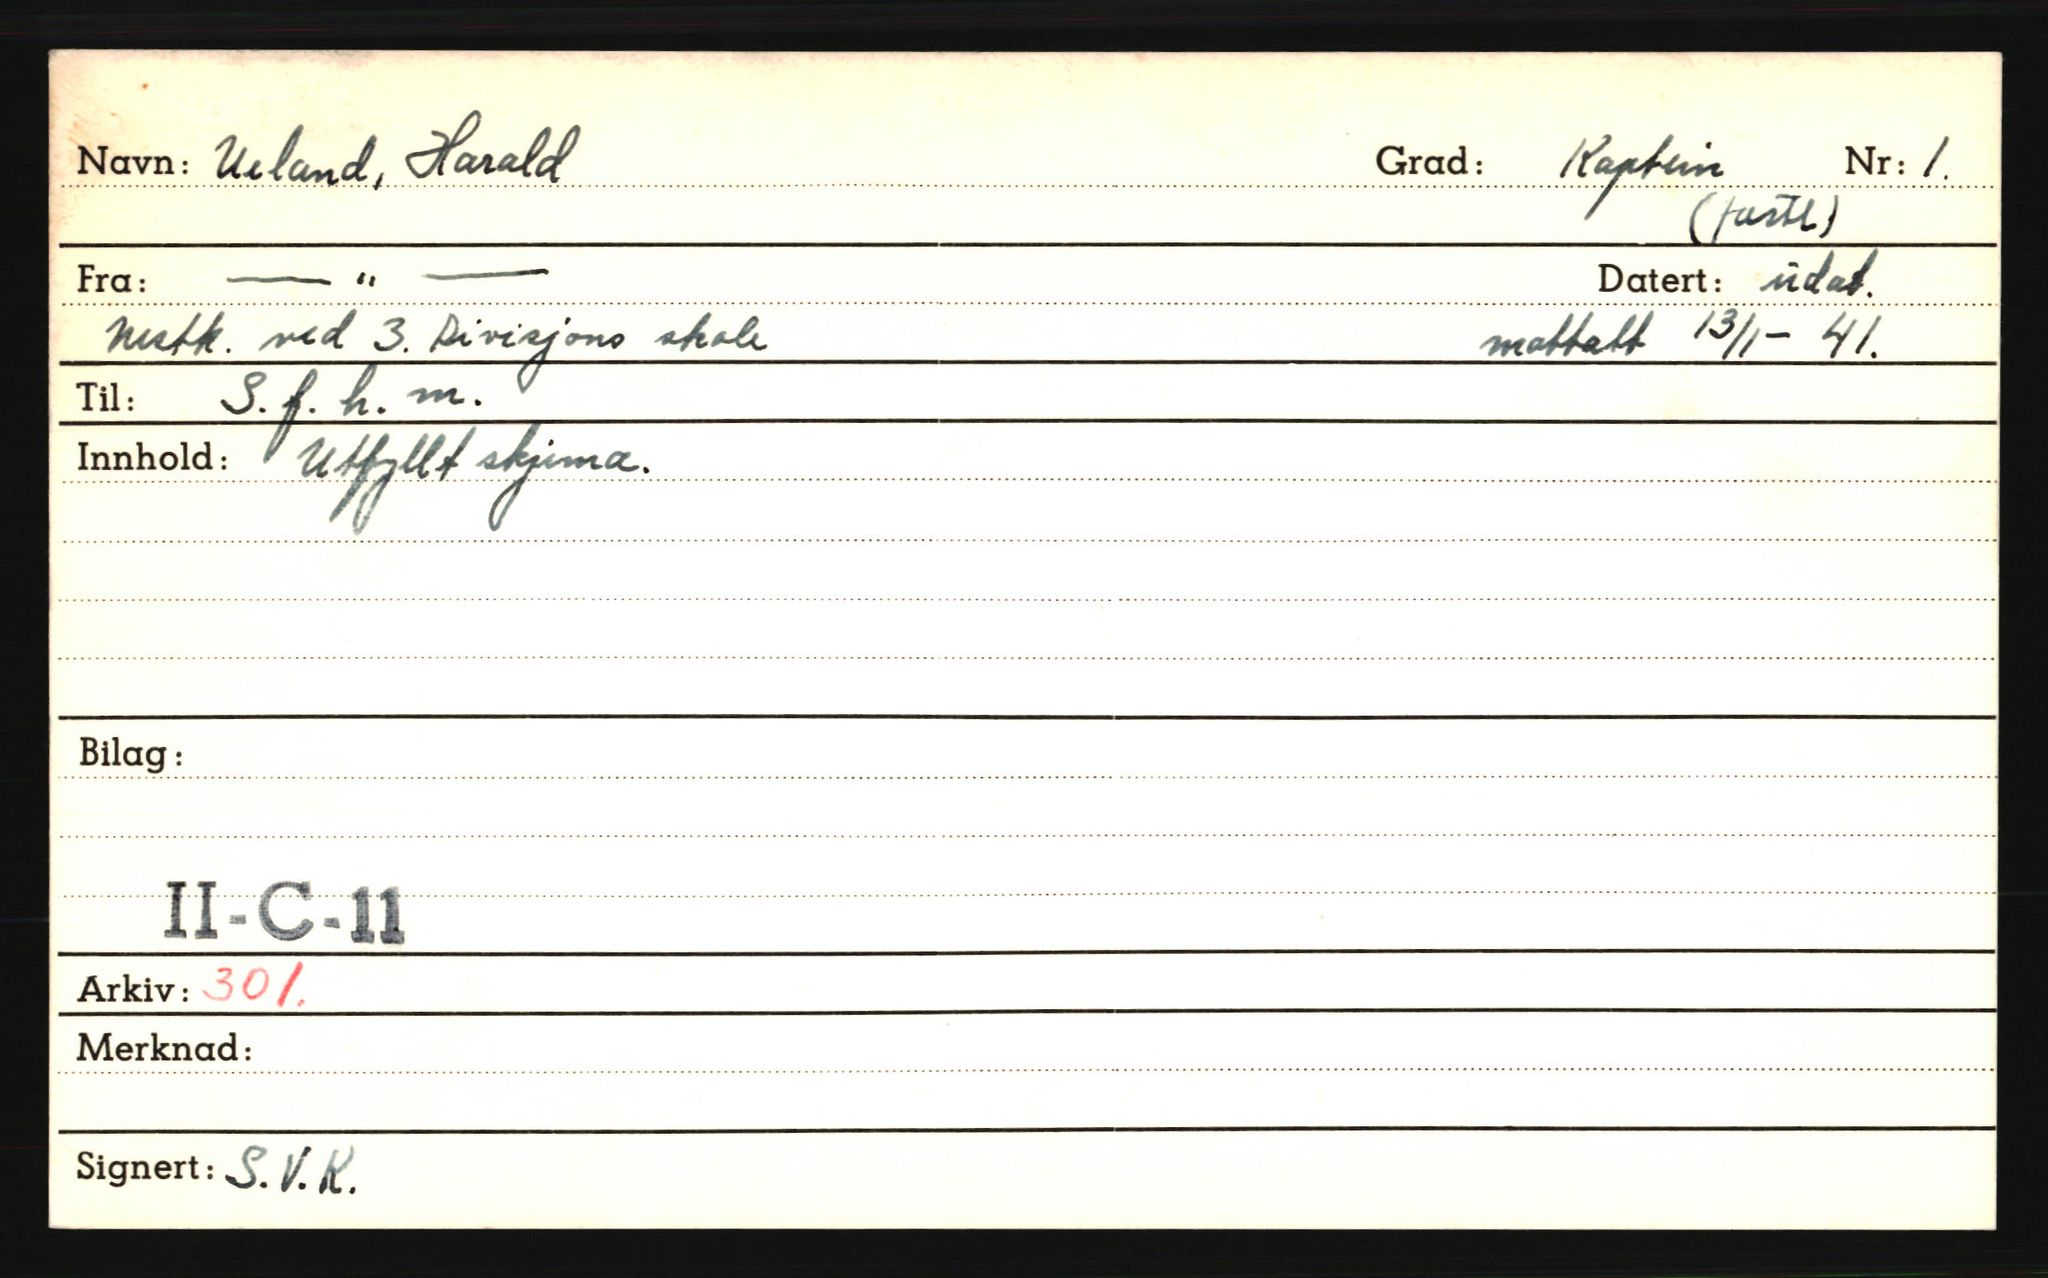 Navn: Ueland, Harald Grad: Kaptein Nr: 1.
Fra: — " — Datert: udat.
Nestk. ved 3. Divisjons skole mottatt 13/1 - 41.
Til: S. f. h. m.
Innhold: Utfyllt skjema.
Bilag:
II-C-11
Arkiv: 301.
Merknad:
Signert: S.V.K.